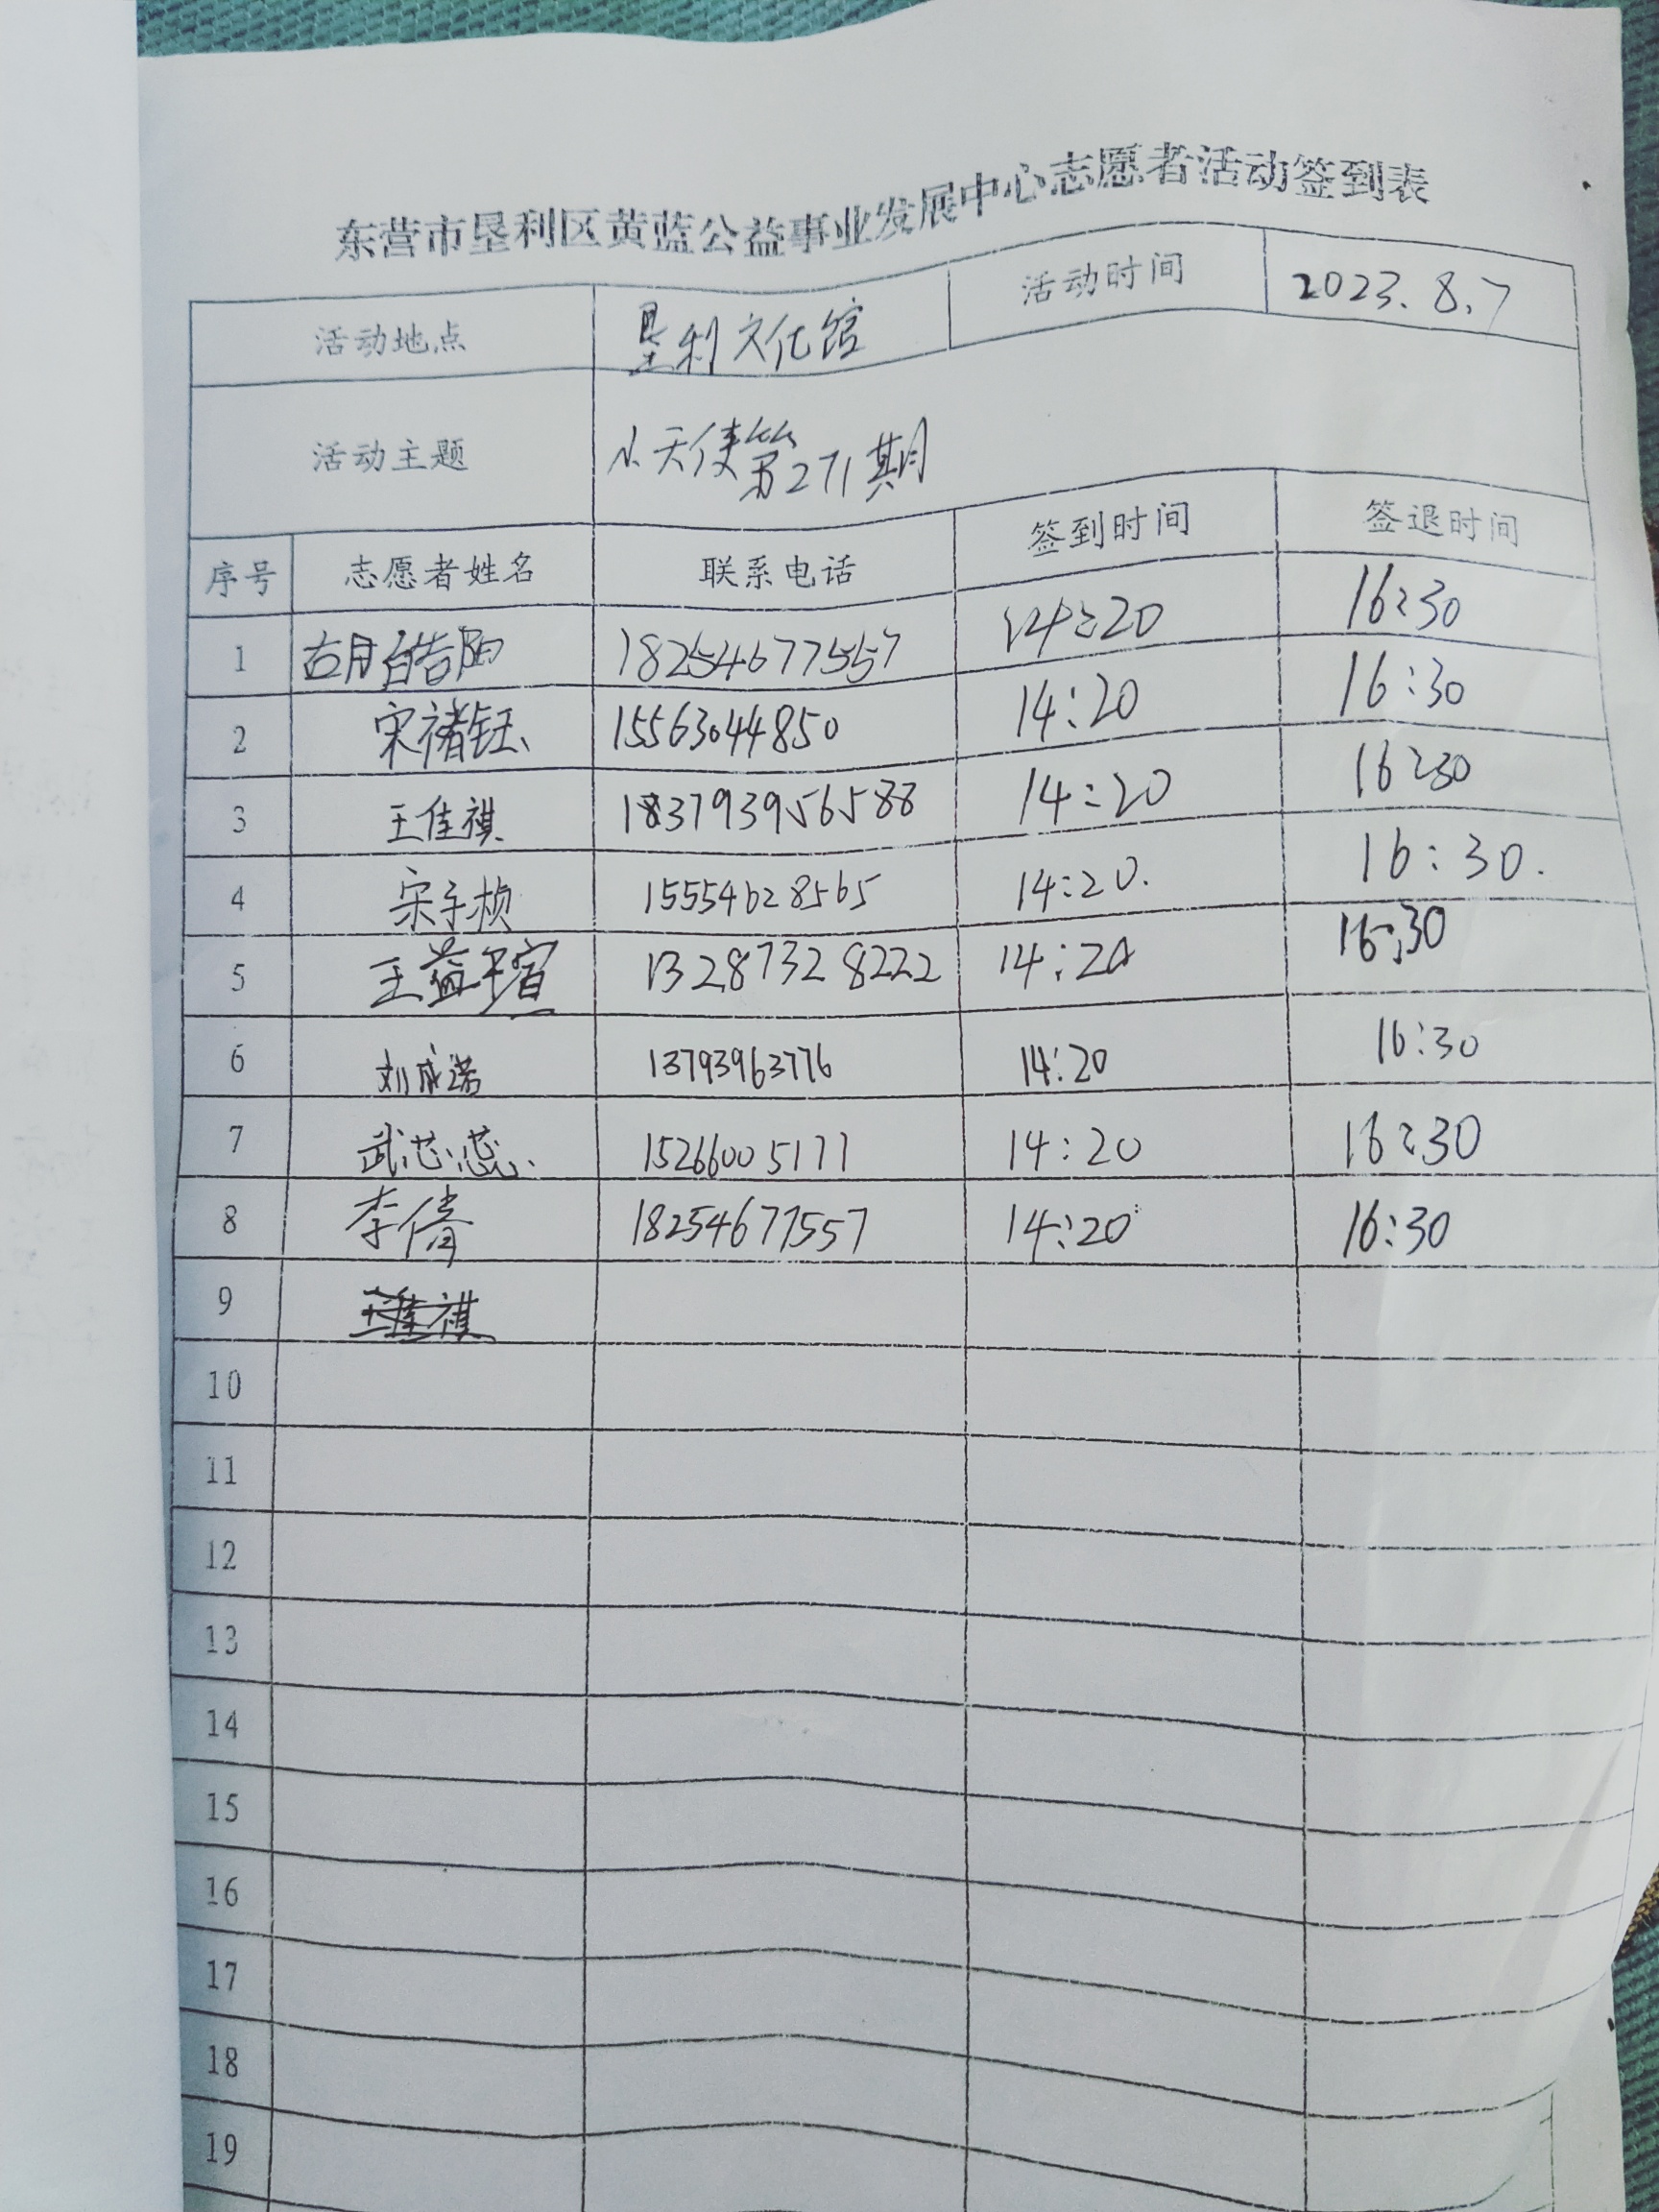 东营市垦利区黄蓝公益事业发展中心志愿者活动签到表
活动地点 垦利文化馆 活动时间 2023.8.7
活动主题 小天使第271期
序号 志愿者姓名 联系电话 签到时间 签退时间
1 胡皓阳 18254677557 14:20 16:30
2 宋褚钰 15563044850 14:20 16:30
3 王佳祺 183793956588 14:20 16:30
4 宋子桢 15554628565 14:20. 16:30.
5 王益宣 13287328222 14:20 16:30
6 刘成诺 13793963776 14:20 16:30
7 武芯蕊 15266005177 14:20 16:30
8 李倩 18254677557 14:20 16:30
9 王佳祺
10
11
12
13
14
15
16
17
18
19